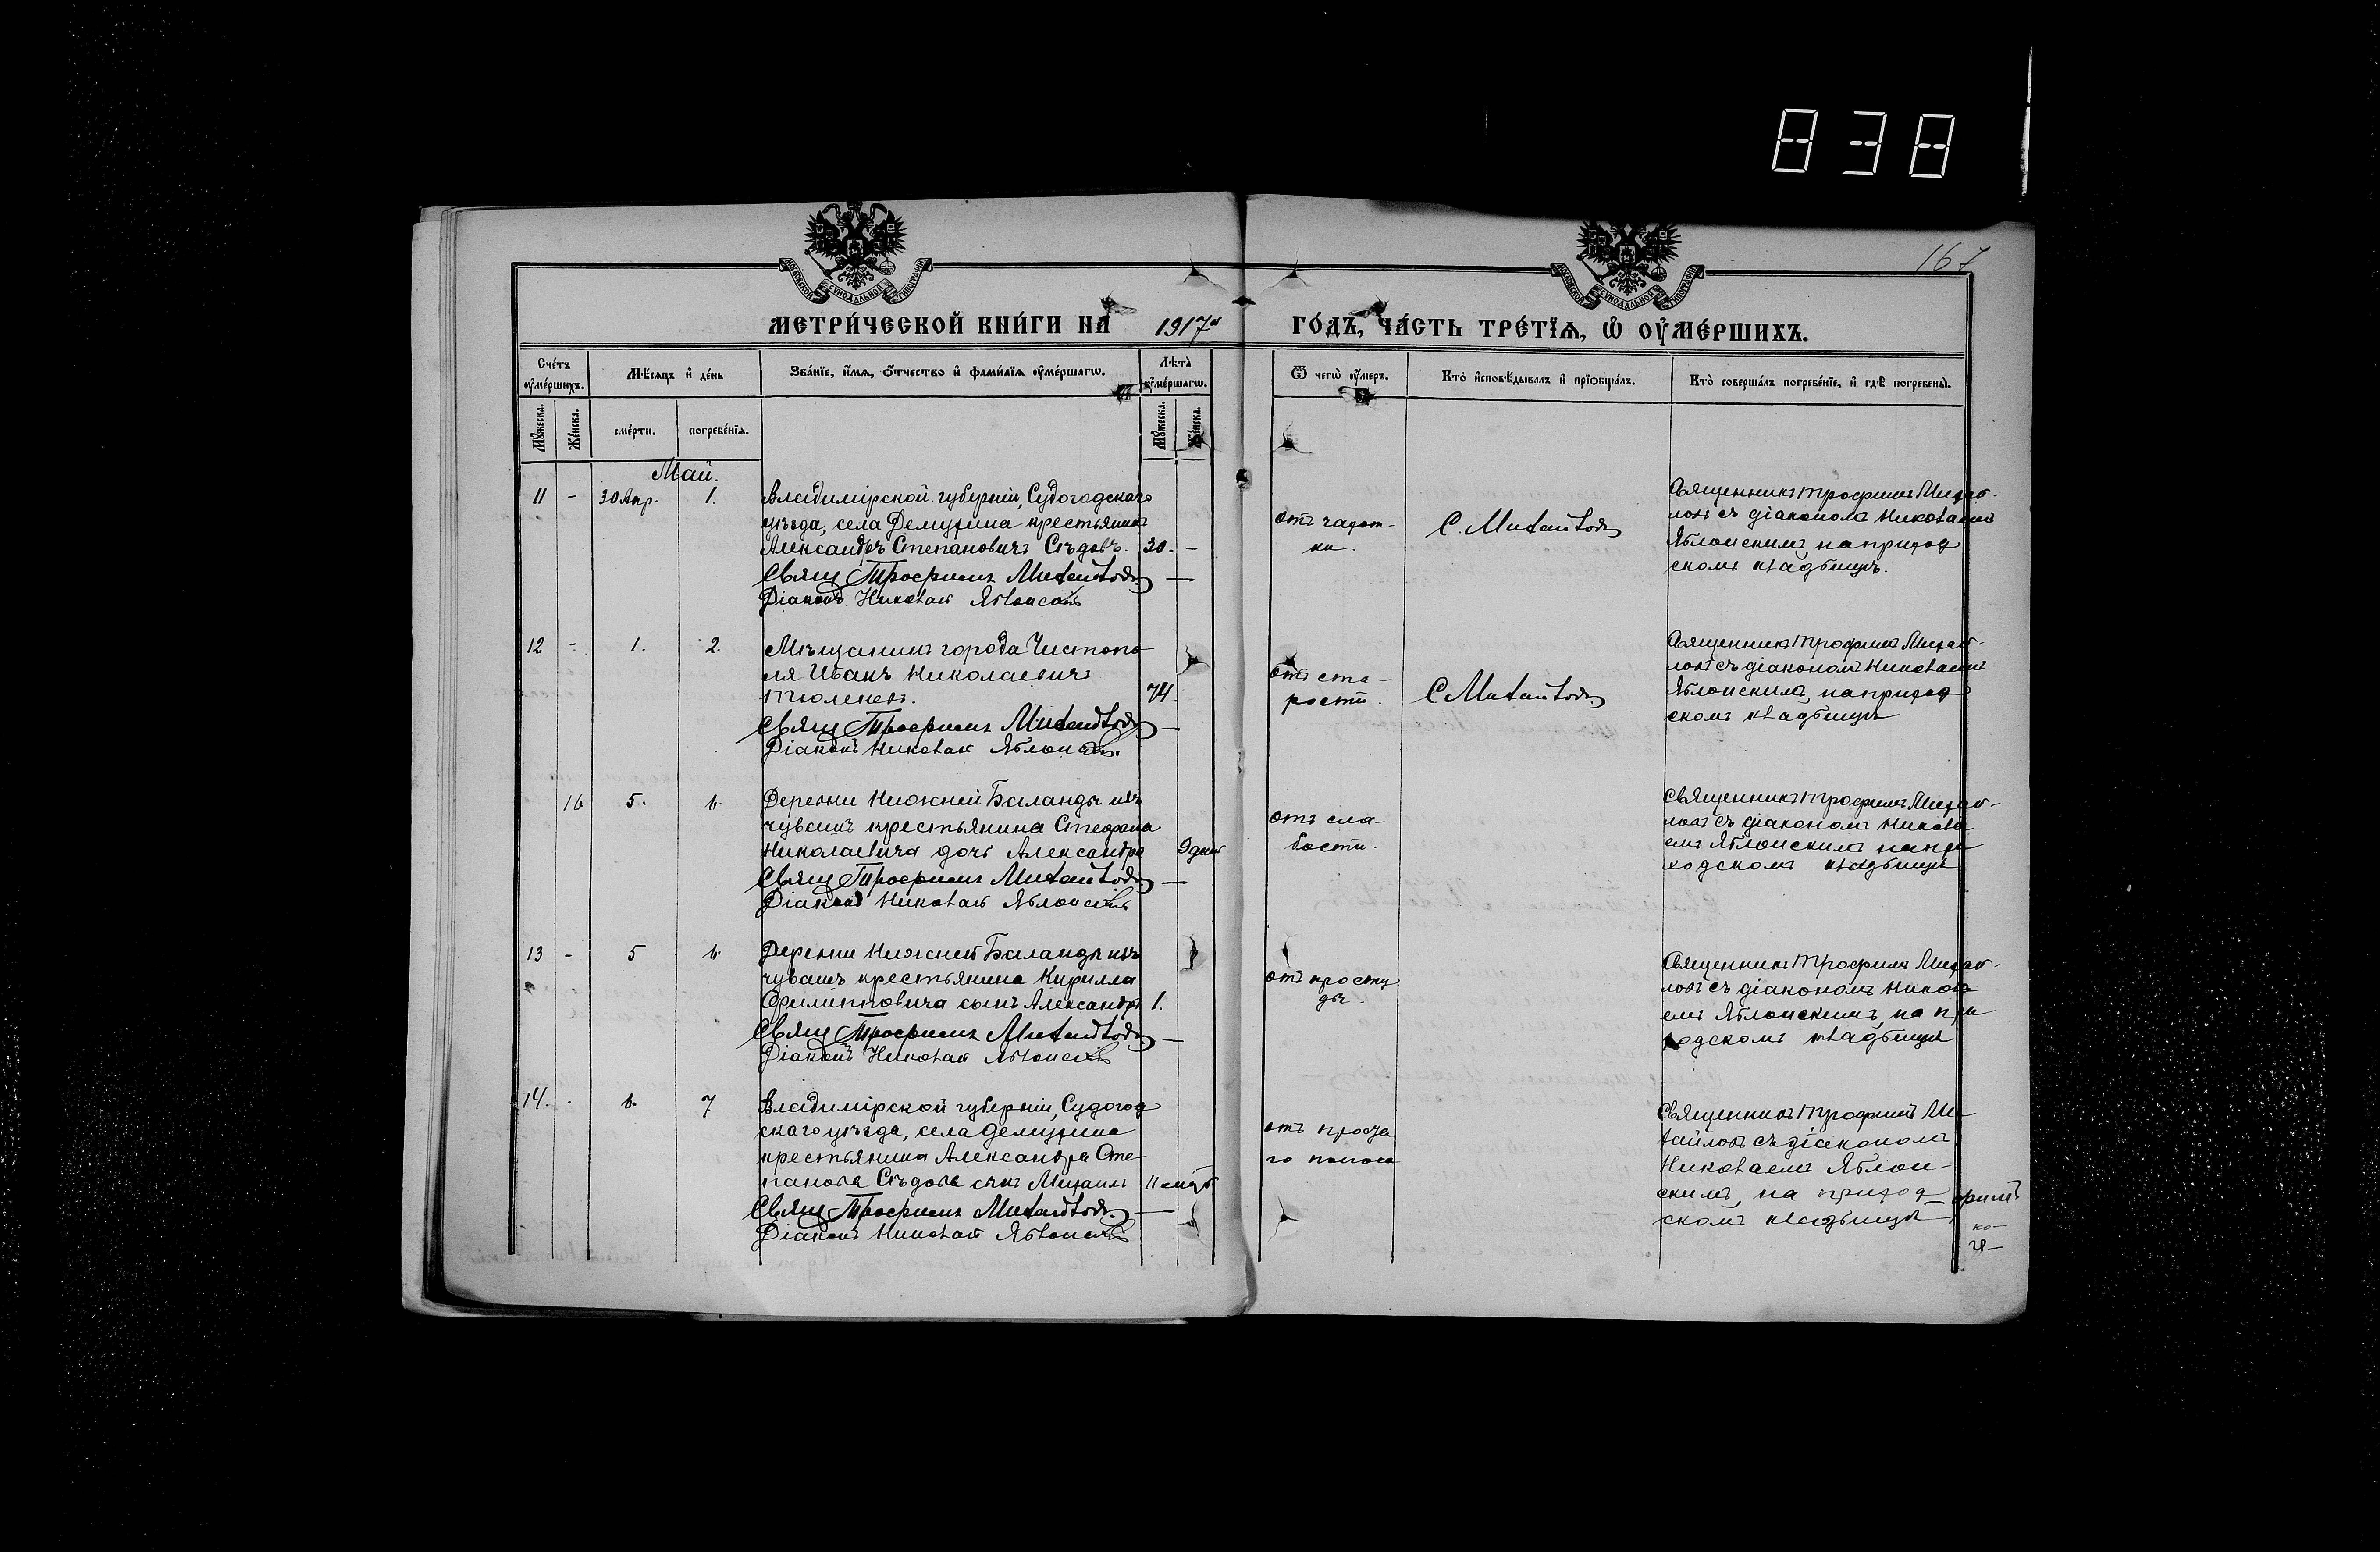 838
167
МЕТРИ́ЧЕСКОЙ КНИ́ГИ НА 1917й ГО́ДЪ, ЧА́СТЬ ТРЕ́ТЇѦ, Ѡ҆ ОУ҆МЕ́РШИХЪ.
Сче́тъ оу҆ме́ршихъ.
Мѣ́сѧцъ и҆ де́нь
Зва́нїе, и҆́мѧ, ѻ҆́тчество и҆ фами́лїѧ оу҆ме́ршагѡ.
Лѣ́та оу҆ме́ршагѡ.
Ѿ чегѡ̀ оу҆́меръ.
Кто̀ и҆сповѣ́дывалъ и҆ прїѡбща́лъ.
Кто̀ соверша́лъ погребе́нїе, и҆ гдѣ̀ погребены̀.
Мꙋ́жеска.
Же́нска.
сме́рти.
погребе́нїѧ.
Мꙋ́жеска.
Же́нска.
Май.
11 - 30 Апр. 1.
Владимірской губерніи, Судогодскаго
уѣзда, села Демухина крестьянинъ
Александръ Степановичъ Сѣдовъ. 30. -
Свящ Трофимъ Михайловъ
Діаконъ Николай Яблонскій
отъ чахот-
ки.
С. Михайловъ
Священникъ Трофимъ Михай-
ловъ съ діакономъ Николаемъ
Яблонскимъ, на приход
скомъ кладбищѣ.
12 - 1. 2.
Мѣщанинъ города Чистопо
ля Иванъ Николаевичъ
Тюленевъ. 74.
Свящ Трофимъ Михайловъ
Діаконъ Николай Яблонскій
отъ ста-
рости.
С Михайловъ
Священникъ Трофимъ Михай-
ловъ съ діакономъ Николаемъ
Яблонскимъ, на приход
скомъ кладбищѣ
16 5. 6.
Деревни Нижней Баланды изъ
чувашъ крестьянина Стефана
Николаевича дочь Александра 9 дней
Свящ Трофимъ Михайловъ
Діаконъ Николай Яблонскій
отъ сла-
бости.
Священникъ Трофимъ Михай-
ловъ съ діакономъ Никола
емъ Яблонскимъ на при
ходскомъ кладбищѣ
13 - 5 6.
Деревни Нижней Баланды изъ
чувашъ крестьянина Кирилла
Филипповича сынъ Александръ 1.
Свящ Трофимъ Михайловъ
Діаконъ Николай Яблонскій
отъ просту
ды.
Священникъ Трофимъ Михай-
ловъ съ діакономъ Никола
емъ Яблонскимъ, на при
ходскомъ кладбищѣ
14. 6. 7
Владимірской губерніи, Судогод
скаго уѣзда, села Демухина
крестьянина Александра Сте-
панова Сѣдова сынъ Михаилъ 11
Свящ Трофимъ Михайловъ
Діаконъ Николай Яблонскій
отъ
го поноса
Священникъ Трофимъ Ми
хайловъ съ діакономъ
Николаемъ Яблон-
скимъ, на приход
скомъ кладбищѣ